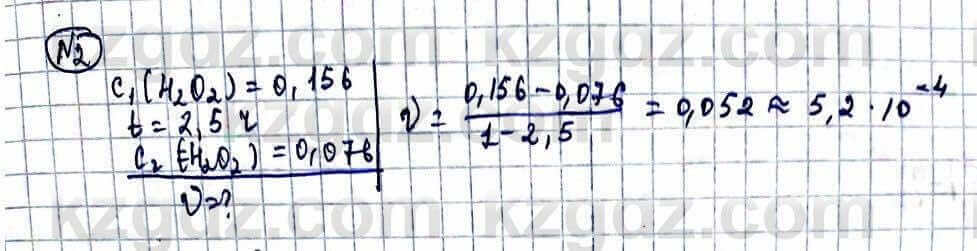 N2
c₁(H₂O₂) = 0,156
t = 2,5 ч
c₂(H₂O₂) = 0,076
υ = ?
υ = (0,156 − 0,076) / (1 − 2,5) = 0,052 ≈ 5,2 · 10⁻⁴
kzgdz.com kzgdz.com
kzgdz.com kzgdz.com
kzgdz.com kzgdz.com